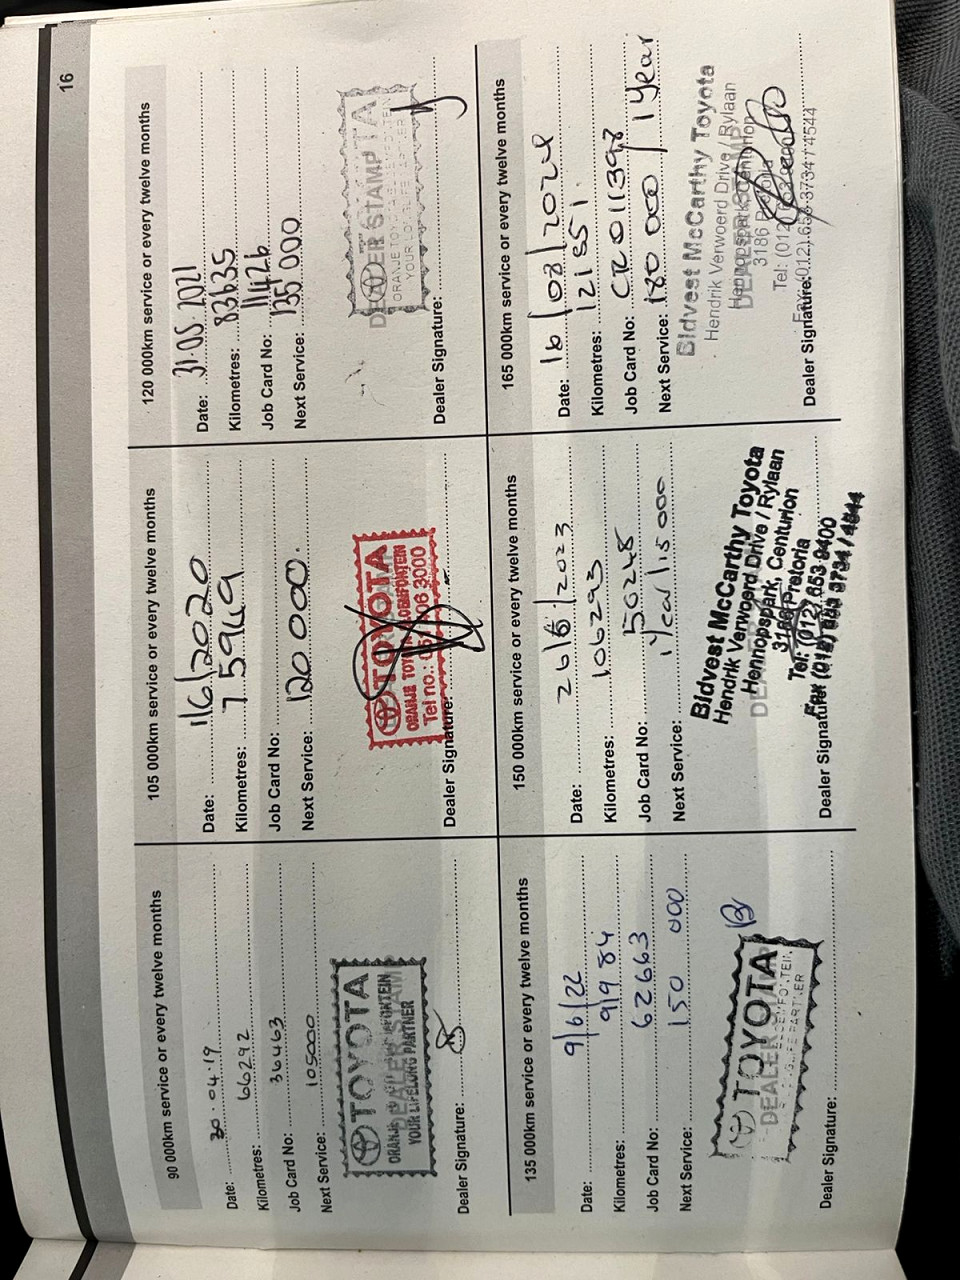 16
90 000km service or every twelve months
Date: 30.04.19
Kilometres: 66292
Job Card No: 36463
Next Service: 105000
TOYOTA
YOUR LIFELONG PARTNER
Dealer Signature:
105 000km service or every twelve months
Date: 1/6/2020
Kilometres: 75949
Job Card No:
Next Service: 120 000.
TOYOTA
ORANJE TOYOTA
Tel no.:
Dealer Signature:
120 000km service or every twelve months
Date: 31.05.2021
Kilometres: 83635
Job Card No: 11426
Next Service: 135 000
STAMP
Dealer Signature:
135 000km service or every twelve months
Date: 9/6/22
Kilometres: 91984
Job Card No: 62663
Next Service: 150 000
TOYOTA
DEALER
Dealer Signature:
150 000km service or every twelve months
Date: 26/6/2023
Kilometres: 106293
Job Card No: 50248
Next Service: 1year/15000
Bidvest McCarthy Toyota
Hendrik Verwoerd Drive / Rylaan
Hennopspark, Centurion
3186 Pretoria
Tel: (012) 653 9400
Dealer Signature:
165 000km service or every twelve months
Date: 16/08/2024
Kilometres: 121551
Job Card No: CR011398
Next Service: 180 000 / 1 Year
Bidvest McCarthy Toyota
Hendrik Verwoerd Drive / Rylaan
Hennopspark, Centurion
3186 Pretoria
Dealer Signature: